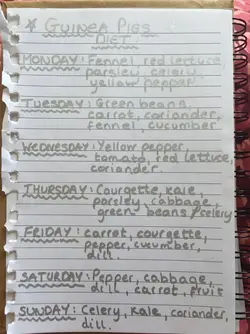 * GUINEA PIGS
DIET
MONDAY: Fennel, red lettuce
parsley, celery,
yellow pepper
TUESDAY: Green beans,
carrot, coriander,
fennel, cucumber.
WEDNESDAY: Yellow pepper,
tomato, red lettuce,
coriander.
THURSDAY: Courgette, kale,
parsley, cabbage,
green beans / celery
FRIDAY: carrot, courgette,
pepper, cucumber,
dill.
SATURDAY: Pepper, cabbage,
dill, carrot, fruit
SUNDAY: Celery, kale, coriander,
dill.